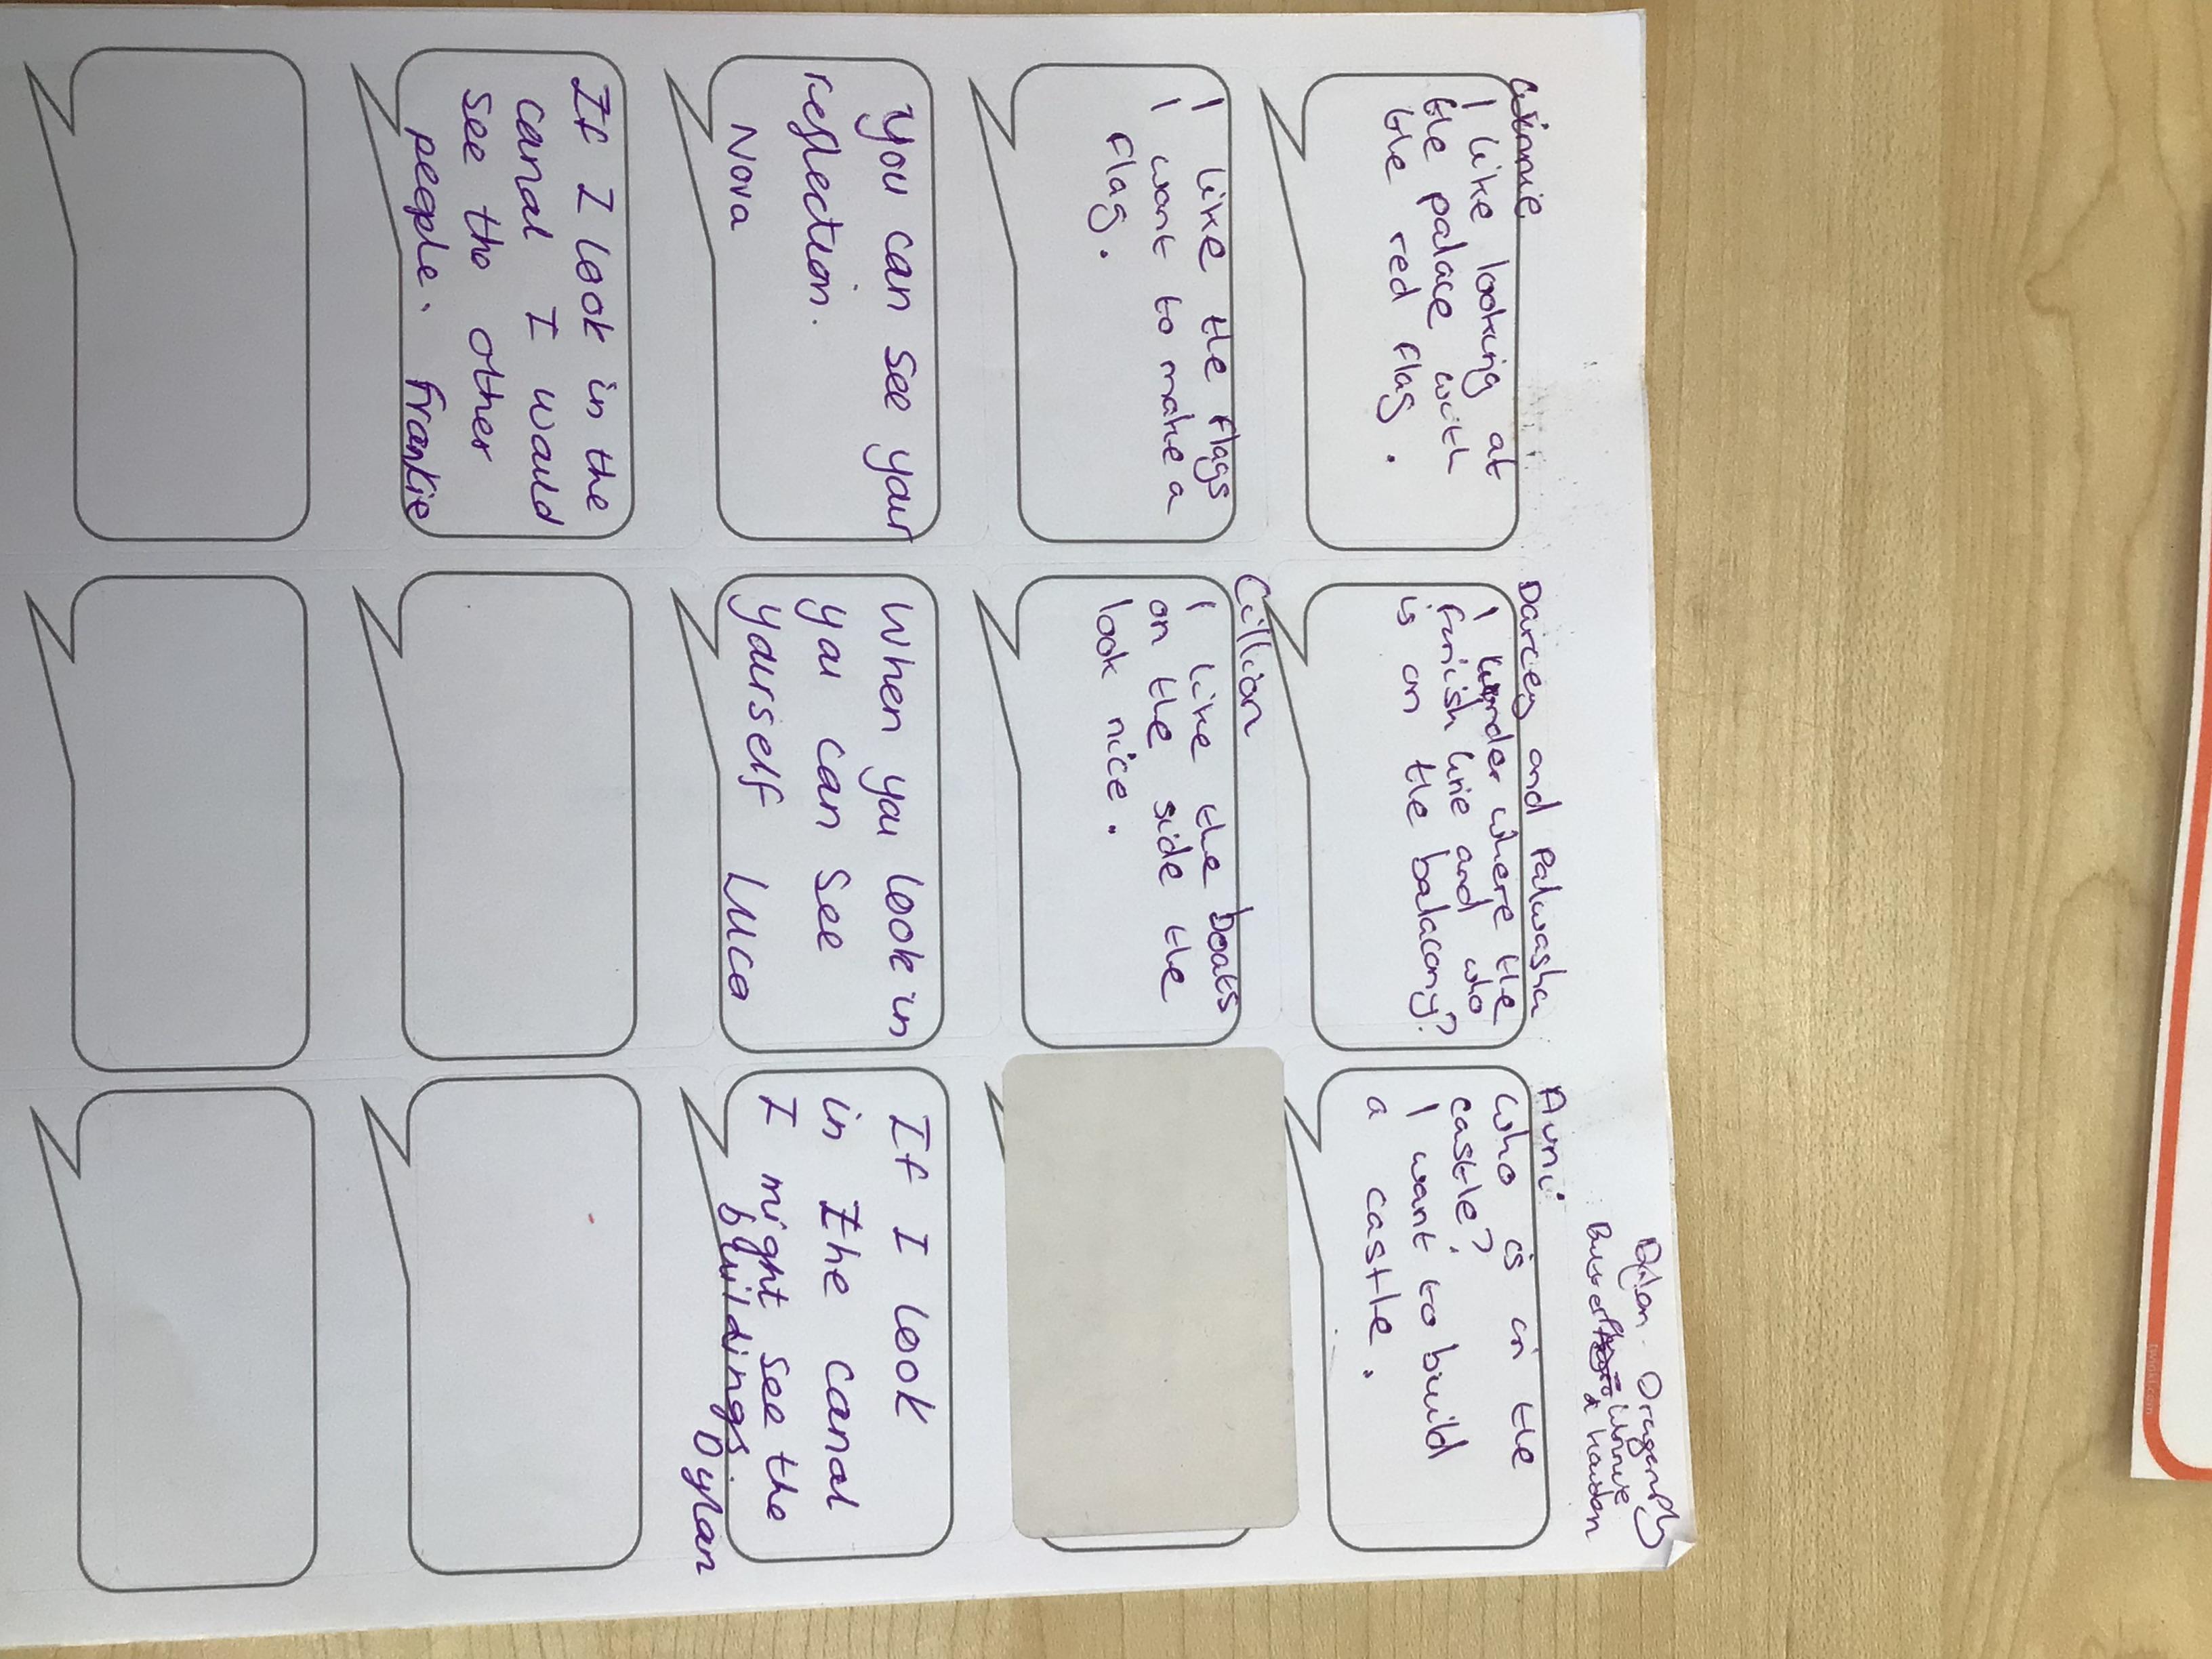 Dylan - Orangenply
Winnie
& Haudon
Winnie
I like looking at
the palace with
the red flag.
Darcey and Palwasha
I wonder where the
finish line and who
is on the balacony?
Avni
Who is in the
castle?
I want to build
a castle.
I like the flags
I want to make a
flag.
Cillian
I like the boats
on the side the
look nice.
You can see your
reflection.
Nova
When you look in
you can see
yourself Luca
If I look
in the canal
I might see the
buildings. Dylan
If I look in the
canal I would
see the other
people. Frankie
twinkl.com